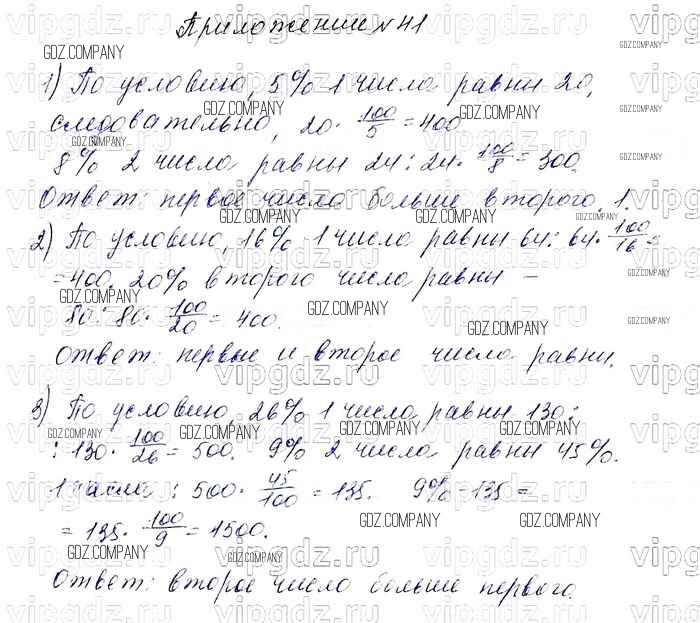 Приложение №41
1) По условию, 5% 1 числа равны 20,
следовательно, 20 · 100/5 = 400
8% 2 числа равны 24: 24 · 100/8 = 300.
Ответ: первое число больше второго. 1.
2) По условию, 16% 1 числа равны 64: 64 · 100/16 =
= 400. 20% второго числа равны –
80: 80 · 100/20 = 400.
Ответ: первые и второе числа равны.
3) По условию, 26% 1 числа равны 130:
: 130 · 100/26 = 500. 9% 2 числа равны 45%.
1 числа: 500 · 45/100 = 135. 9% – 135 =
= 135 · 100/9 = 1500.
Ответ: второе число больше первого.
GDZ.COMPANY
vipgdz.ru